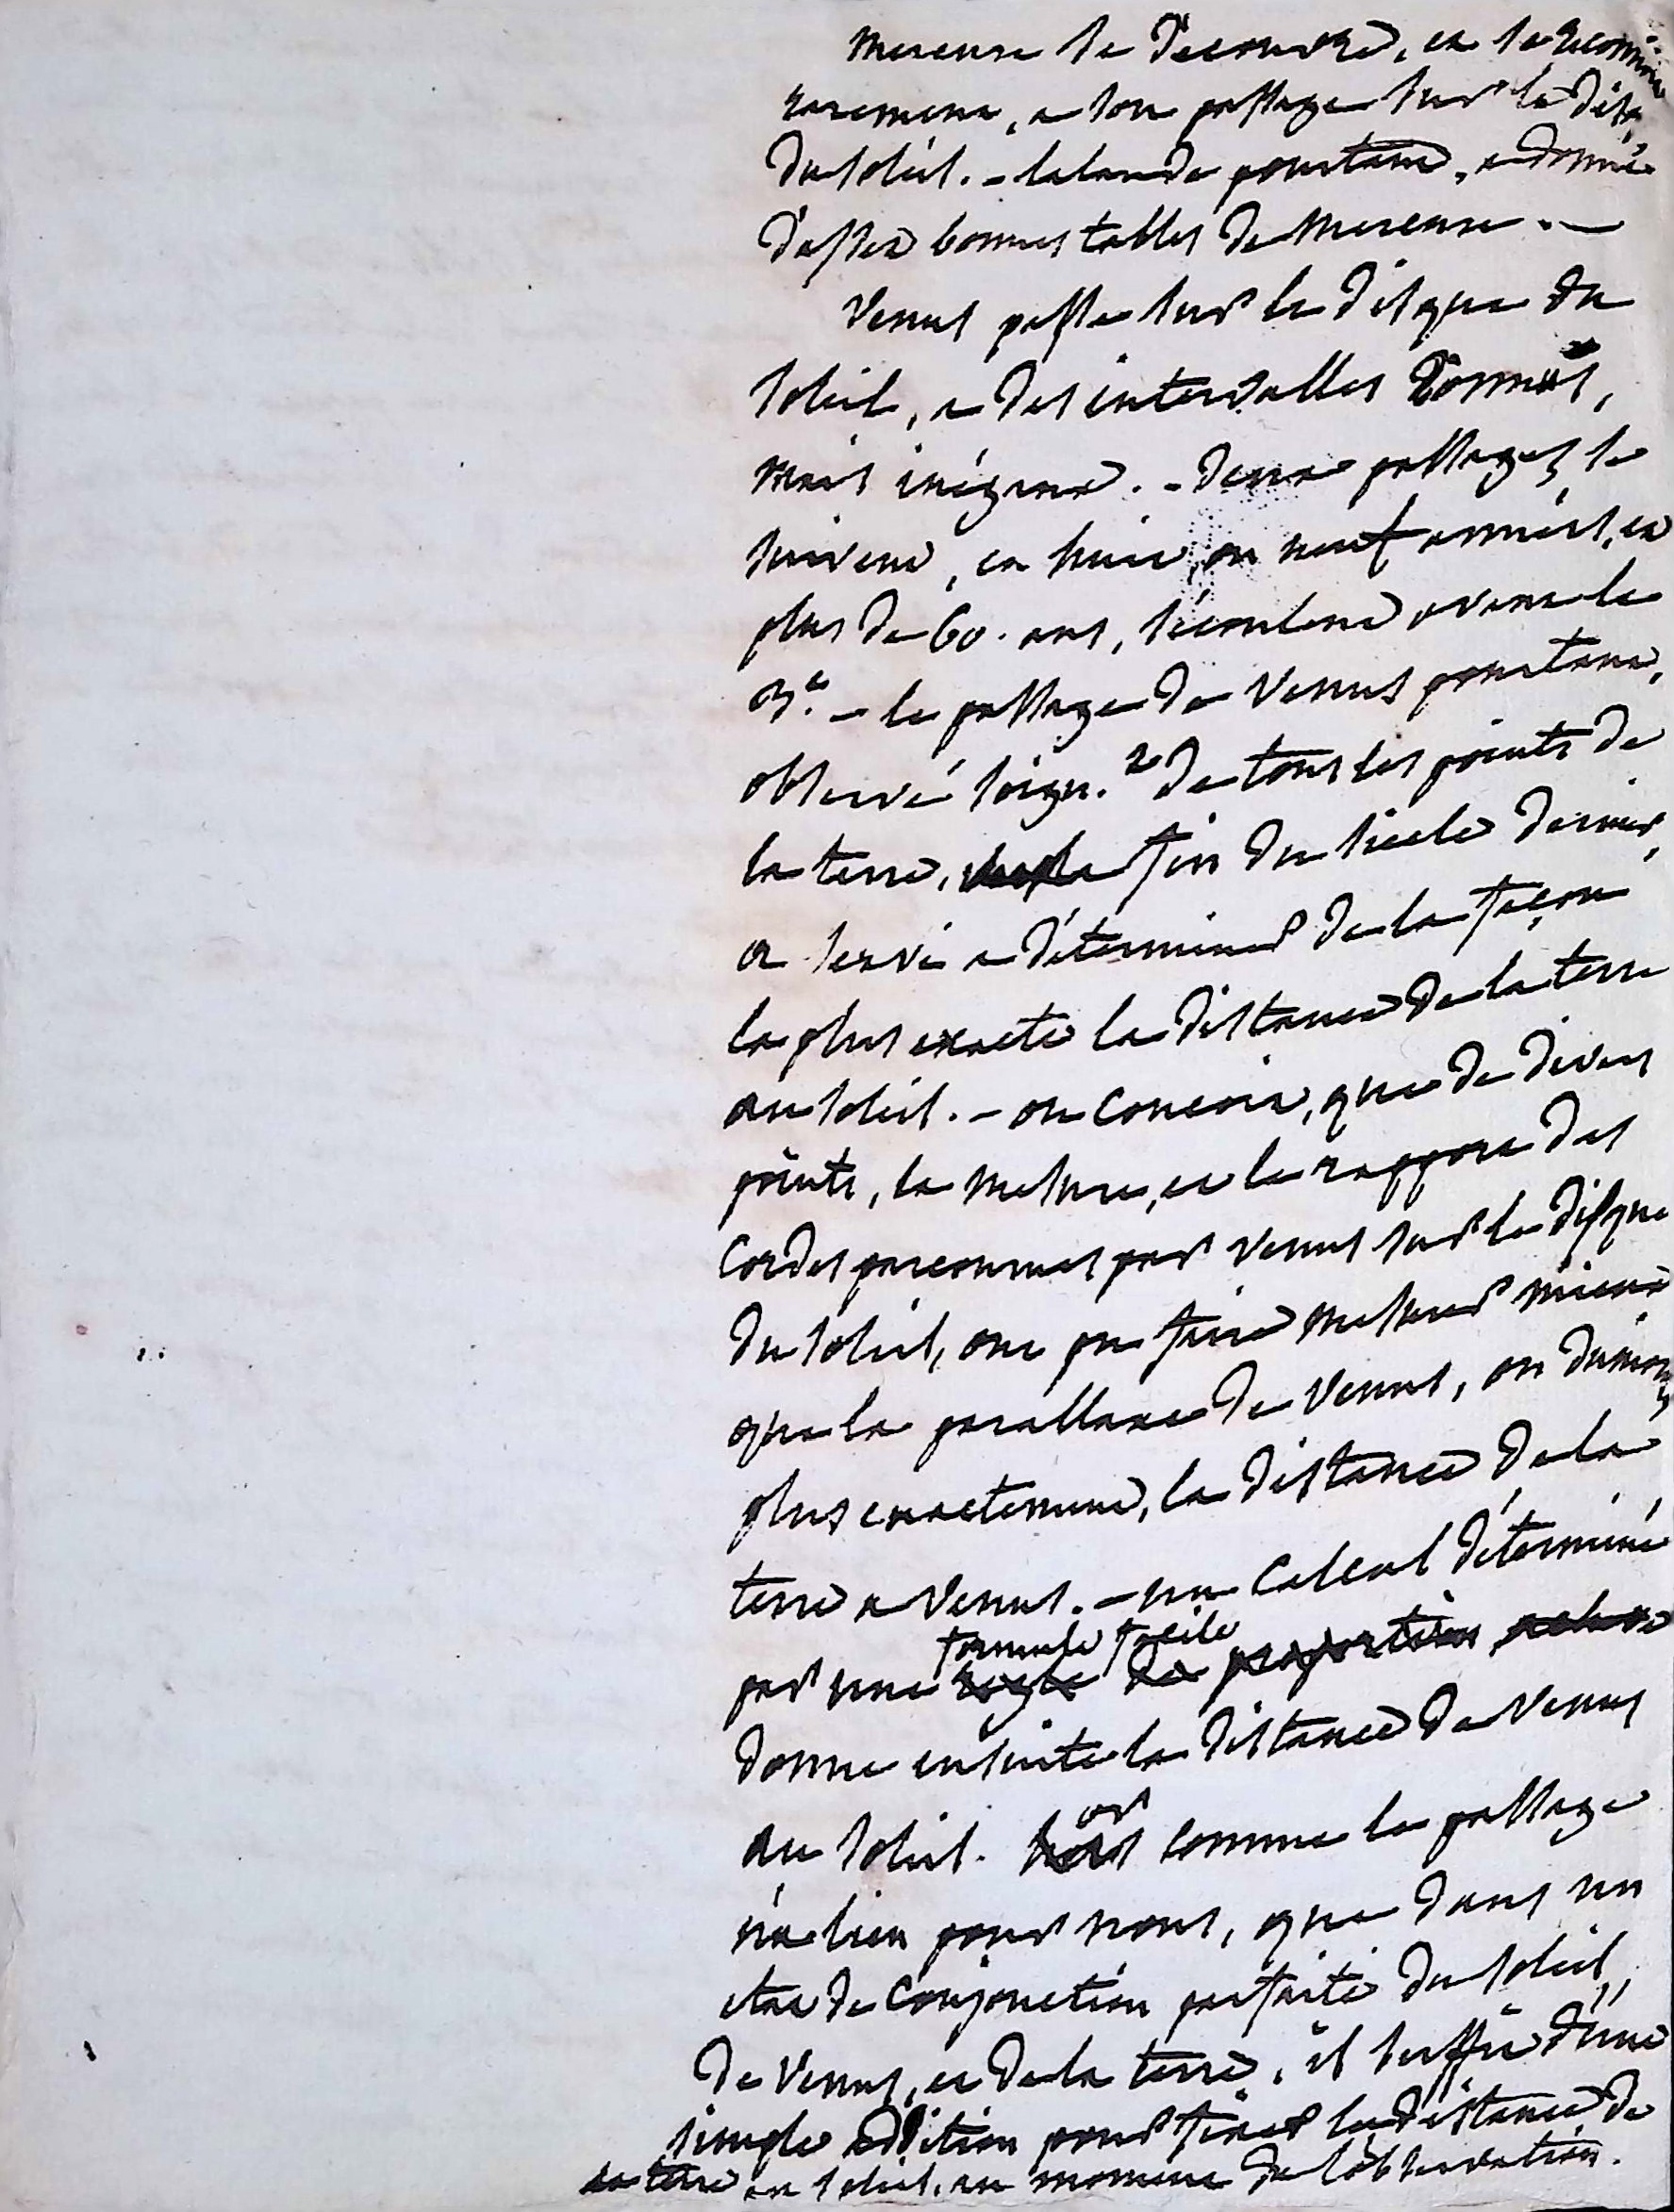 mercure se decouvre, et se reconnoit
rarement, a son passage sur le disq.
du soleil. - lalande pourtant, a donné
d'assez bonnes tables de mercure. —
Venus passe sur le disque du
soleil, a des intervalles donnés,
mais inégaux. - deux passages se
suivent, en huit, ou neuf années, et
plus de 60. ans, s'écoulent avant le
3.e - le passage de Venus pourtant,
observé soign.t de tous les points de
la terre, la fin du siecle dernier,
a servi a déterminer de la façon
la plus exacte la distance de la terre
au soleil. - on concoit, que de divers
points, la mesure, et le rapport des
cordes parcourues par venus sur le disque
du soleil, ont pu faire mesurer mieux
que la parallaxe de Venus, ou du moins
plus exactement, la distance de la
terre a Venus. - un calcul déterminé
par une formule facile
donne ensuite la distance de Venus
au soleil. or comme le passage
n'a lieu pour nous, que dans un
etat de conjonction parfaite du soleil,
de Venus, et de la terre, il suffit d'une
simple addition pour fixer la distance de
la terre au soleil, au moment de l'observation.